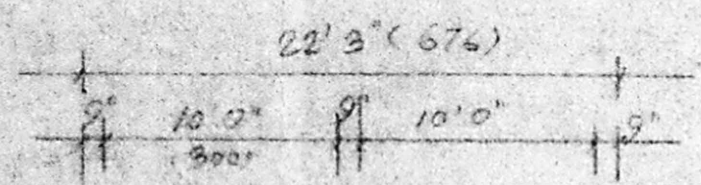 22' 3" (676)
9" 10'0" 9" 10'0" 9"
300